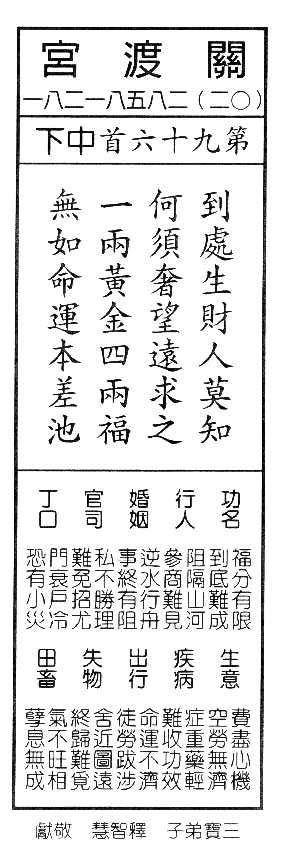 關渡宮
(〇二)二八五八一二八一
第九十六首中下
到處生財人莫知
何須奢望遠求之
一兩黃金四兩福
無如命運本差池
功名
福分有限
到底難成
行人
阻隔山河
參商難見
婚姻
逆水行舟
事終有阻
官司
私不勝理
難免招尤
丁口
門衰戶冷
恐有小災
生意
費盡心機
空勞無濟
疾病
症重藥輕
難收功效
出行
命運不濟
徒勞跋涉
失物
舍近圖遠
終歸難覓
田畜
氣不旺相
孽息無成
三寶弟子 釋智慧 敬獻